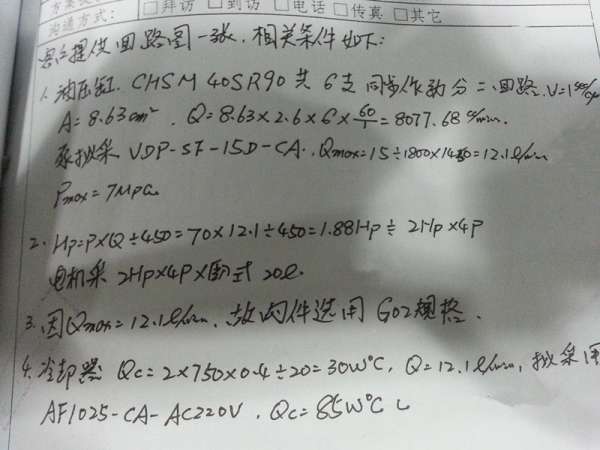 沟通方式: □拜访 □到访 □电话 □传真 □其它
客户提供回路图一张,相关条件如下:
1. 油压缸 CHSM 40SR90 共6支 同步作动 分二回路. V=1
A=8.63cm². Q=8.63×2.6×6×60/1=8077.68 cc/min.
泵拟采 VDP-SF-15D-CA. Qmax=15÷1800×1450=12.1ℓ/min
Pmax=7Mpa
2. Hp=P×Q÷450=70×12.1÷450=1.88Hp≑2Hp×4P
电机采 2Hp×4P×卧式 20ℓ.
3. 因Qmax=12.1ℓ/min. 故阀件选用 G02规格.
4. 冷却器 Qc=2×750×0.4÷20=30W/°C, Q=12.1ℓ/min, 拟采用
AF1025-CA-AC220V. Qc=85W/°C